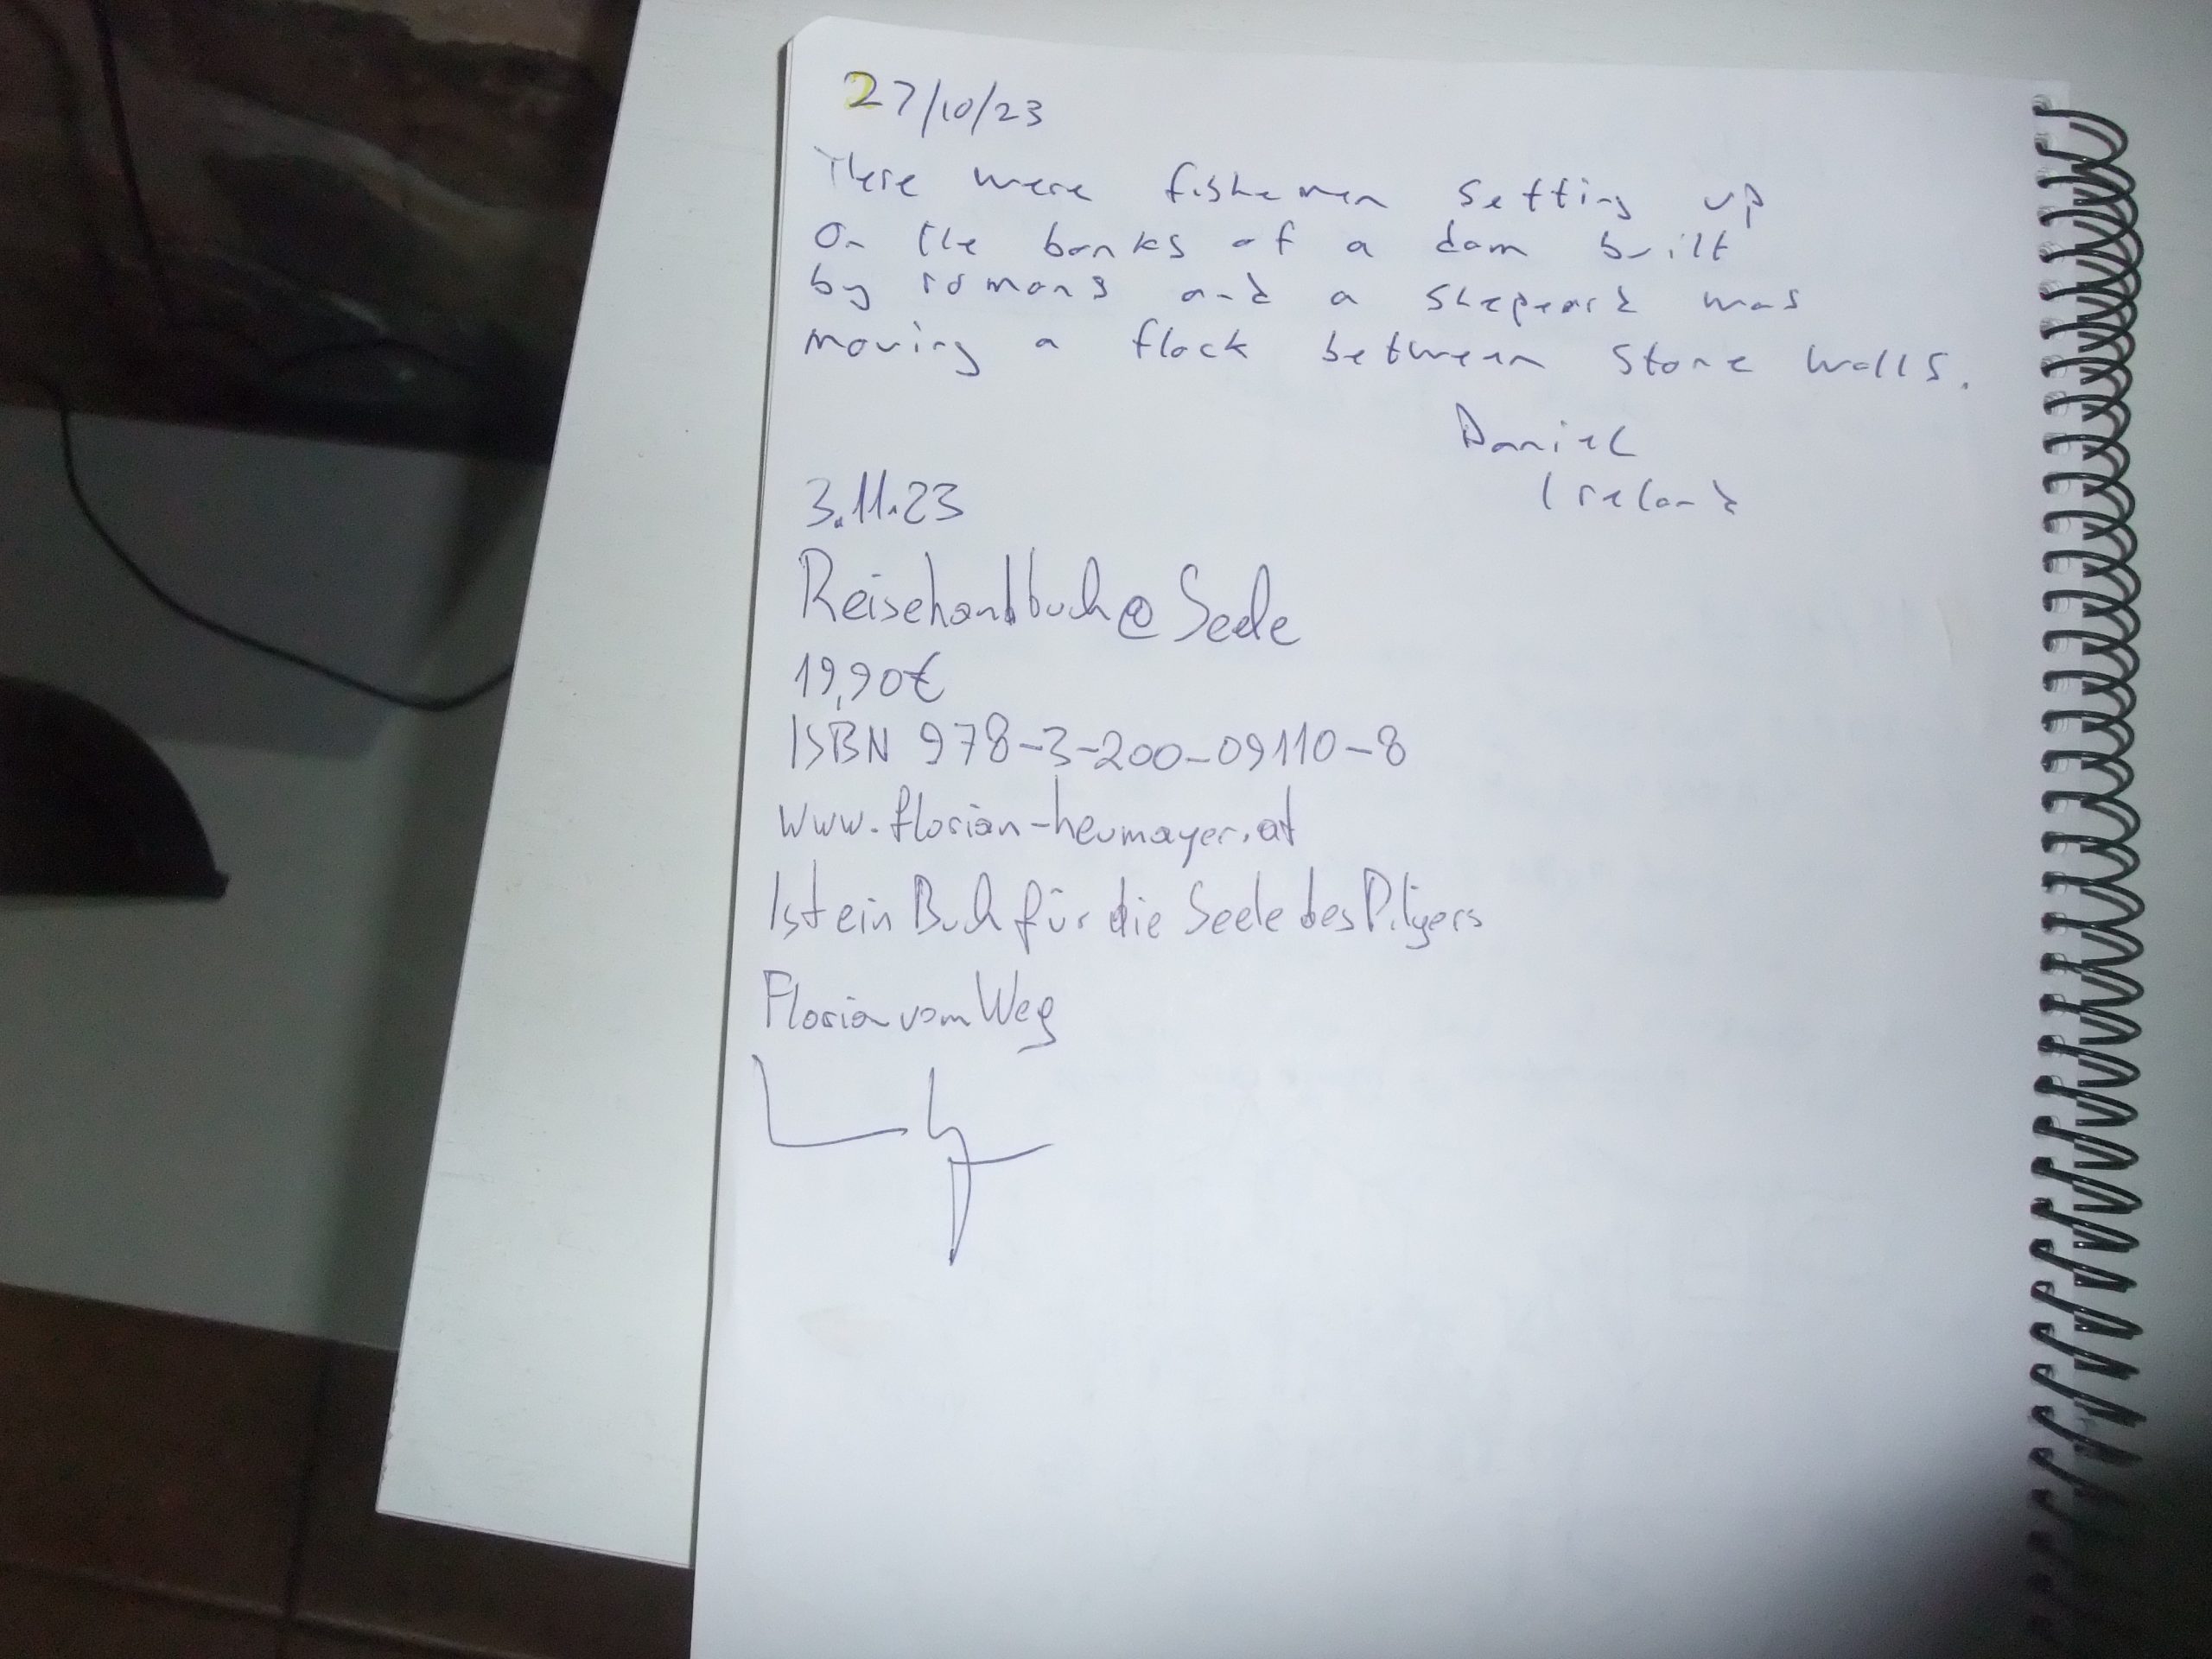 27/10/23
There were fishemen setting up
On the banks of a dam built
by romans and a shepeard was
moving a flock between stone walls.
Daniel
Ireland
3.11.23
Reisehandbuch@Seele
19,90€
ISBN 978-3-200-09110-8
www.florian-heumayer.at
Ist ein Buch für die Seele des Pilgers
Florian vom Weg